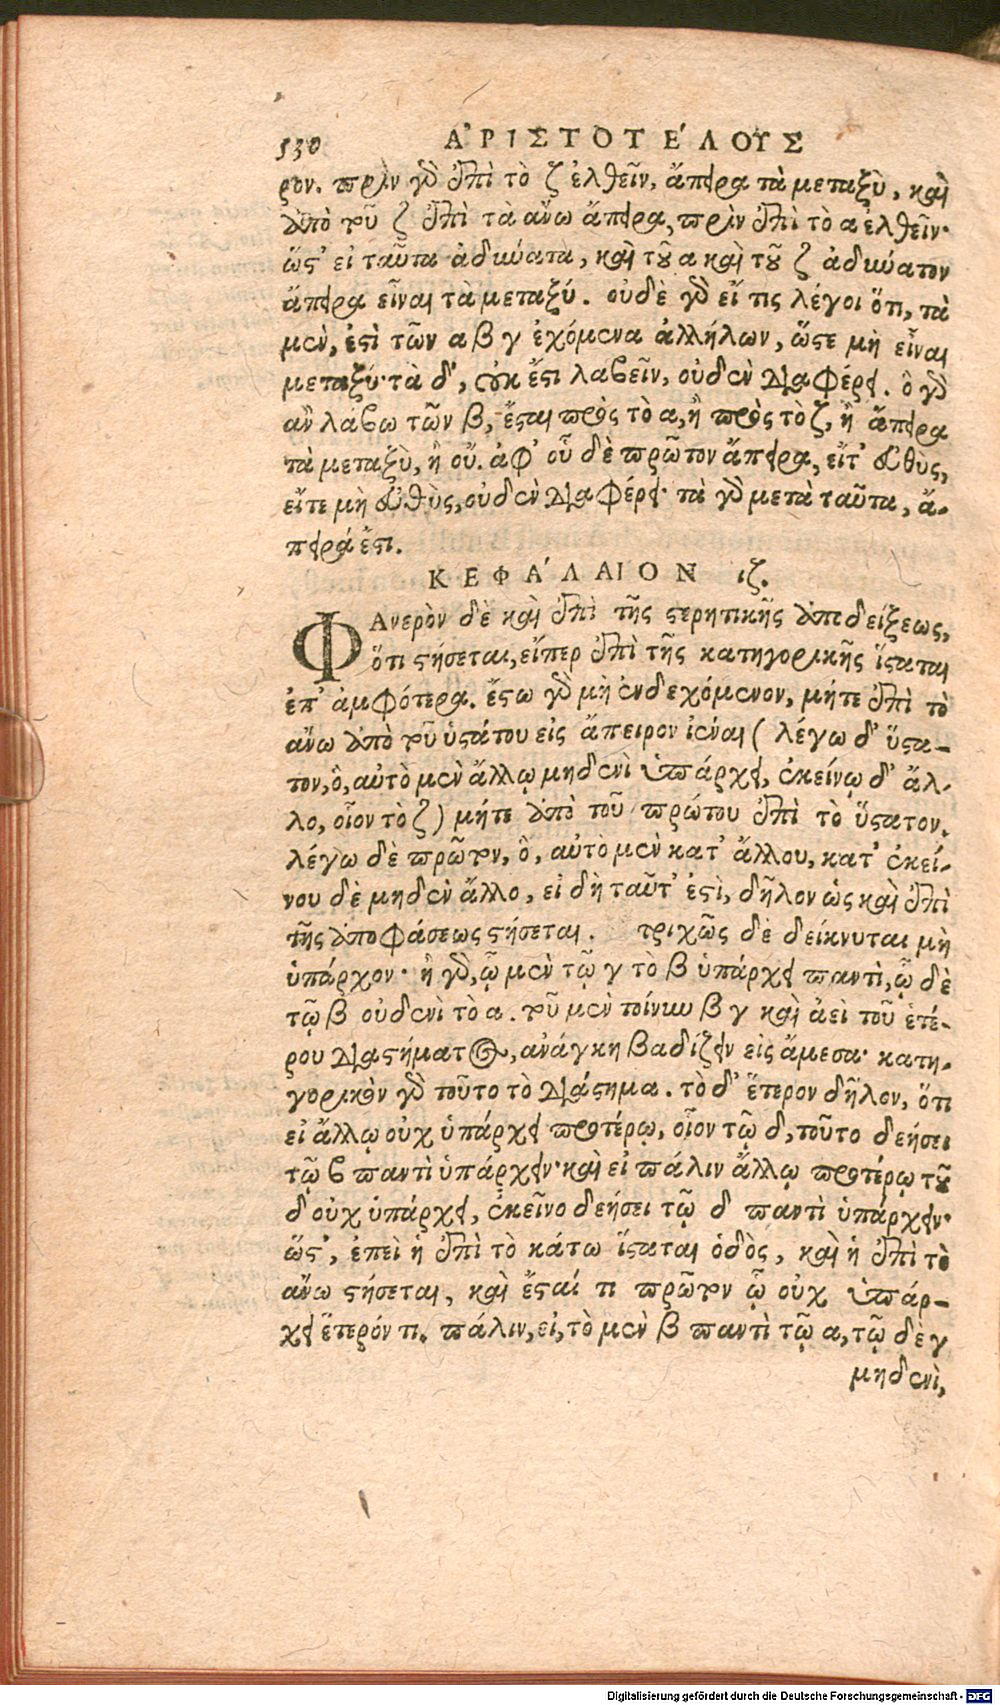 530 ἈΡΙΣΤΟΤΈΛΟΥΣ
ρον. πρὶν γὸ ἐπὶ τὸ ζ ἐλθεῖν, ἄπειρα τὰ μεταξὺ, καὶ
ἀπὸ τοῦ ζ ἐπὶ τὰ ἄνω ἄπειρα, πρὶν ἐπὶ τὸ α ἐλθεῖν·
ὥςτ' εἰ ταῦτα ἀδύνατα, καὶ τοῦ α καὶ τοῦ ζ ἀδύνατον
ἄπειρα εἶναι τὰ μεταξύ. οὐδὲ γὸ εἴ τις λέγοι ὅτι, τὰ
μὲν, ἐστὶ τῶν α β γ ἐχόμενα ἀλλήλων, ὥστε μὴ εἶναι
μεταξύ· τὰ δ', οὐκ ἔστι λαβεῖν, οὐδὲν διαφέρει. ὃ γὸ
ἂν λάβω τῶν β, ἔσται πρὸς τὸ α, ἢ πρὸς τὸ ζ, ἢ ἄπειρα
τὰ μεταξὺ, ἢ οὔ. ἀφ' οὗ δὲ πρῶτον ἄπειρα, εἴτ' εὐθὺς,
εἴτε μὴ εὐθὺς, οὐδὲν διαφέρει· τὰ γὸ μετὰ ταῦτα, ἄ-
πειρά ἐστι.
ΚΕΦΆΛΑΙΟΝ ιζ.
ΦΑνερὸν δὲ καὶ ἐπὶ τῆς στερητικῆς ἀποδείξεως,
ὅτι στήσεται, εἴπερ ἐπὶ τῆς κατηγορικῆς ἵσταται
ἐπ' ἀμφότερα. ἔστω γὸ μὴ ἐνδεχόμενον, μήτε ἐπὶ τὸ
ἄνω ἀπὸ τοῦ ὑστάτου εἰς ἄπειρον ἰέναι ( λέγω δ' ὕστα-
τον, ὃ, αὐτὸ μὲν ἄλλῳ μηδενὶ ὑπάρχει, ἐκείνῳ δ' ἄλ-
λο, οἷον τὸ ζ ) μήτε ἀπὸ τοῦ πρώτου ἐπὶ τὸ ὕστατον.
λέγω δὲ πρῶτον, ὃ, αὐτὸ μὲν κατ' ἄλλου, κατ' ἐκεί-
νου δὲ μηδὲν ἄλλο, εἰ δὴ ταῦτ' ἐστὶ, δῆλον ὡς καὶ ἐπὶ
τῆς ἀποφάσεως στήσεται. τριχῶς δὲ δείκνυται μὴ
ὑπάρχον· ἢ γὸ, ᾧ μὲν τῷ γ τὸ β ὑπάρχει παντὶ, ᾧ δὲ
τῷ β οὐδενὶ τὸ α. τοῦ μὲν τοίνυν β γ καὶ ἀεὶ τοῦ ἑτέ-
ρου διαστήματος, ἀνάγκη βαδίζειν εἰς ἄμεσα· κατη-
γορικὸν γὸ τοῦτο τὸ διάστημα. τὸ δ' ἕτερον δῆλον, ὅτι
εἰ ἄλλῳ οὐχ ὑπάρχει προτέρῳ, οἷον τῷ δ, τοῦτο δεήσει
τῷ β παντὶ ὑπάρχειν· καὶ εἰ πάλιν ἄλλῳ προτέρῳ τοῦ
δ οὐχ ὑπάρχει, ἐκεῖνο δεήσει τῷ δ παντὶ ὑπάρχειν·
ὥςτ', ἐπεὶ ἡ ἐπὶ τὸ κάτω ἵσταται ὁδὸς, καὶ ἡ ἐπὶ τὸ
ἄνω στήσεται, καὶ ἔσται τι πρῶτον ᾧ οὐχ ὑπάρ-
χει ἕτερόν τι. πάλιν, εἰ, τὸ μὲν β παντὶ τῷ α, τῷ δὲ γ
μηδενὶ,
Digitalisierung gefördert durch die Deutsche Forschungsgemeinschaft - DFG